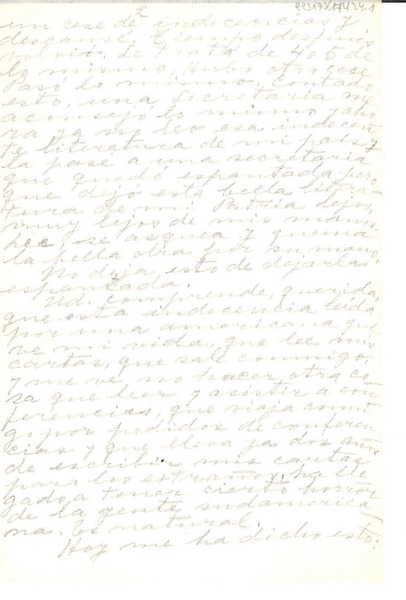 2
un cese de indecencias y,
descansé. Tiempo después
volvió. Se trata de 4 o 5 de
lo mismo. Hubo otro cese.
Paso lo mismo. Contado
esto, una Secretaria me
aconsejó lo mismo y aho
ra ya no leo esa indecen
te literatura de mi país y
la pasé a una secretaria
que quedó espantada pero
que dejó esta bella litera
tura de mi Patria lejos,
muy lejos de mis manos.
Lee, se asquea y quema
la bella obra por su mano.
No deja, esto de dejarla
espantada.
Ud. comprende, querida,
que esta indecencia leída
por una americana que
ve mi vida, que lee mis
cartas, que sale conmigo,
y me ve no hacer otra co
sa que leer y asistir a con
ferencias, que viaja conmi
go por pedidos de conferen
cias y que lleva ya dos años
de escribir mis cartas
para los extraños, ha lle
gado a tener cierto horror
de la gente sudamerica
na. Es natural.
Hoy me ha dicho esto: